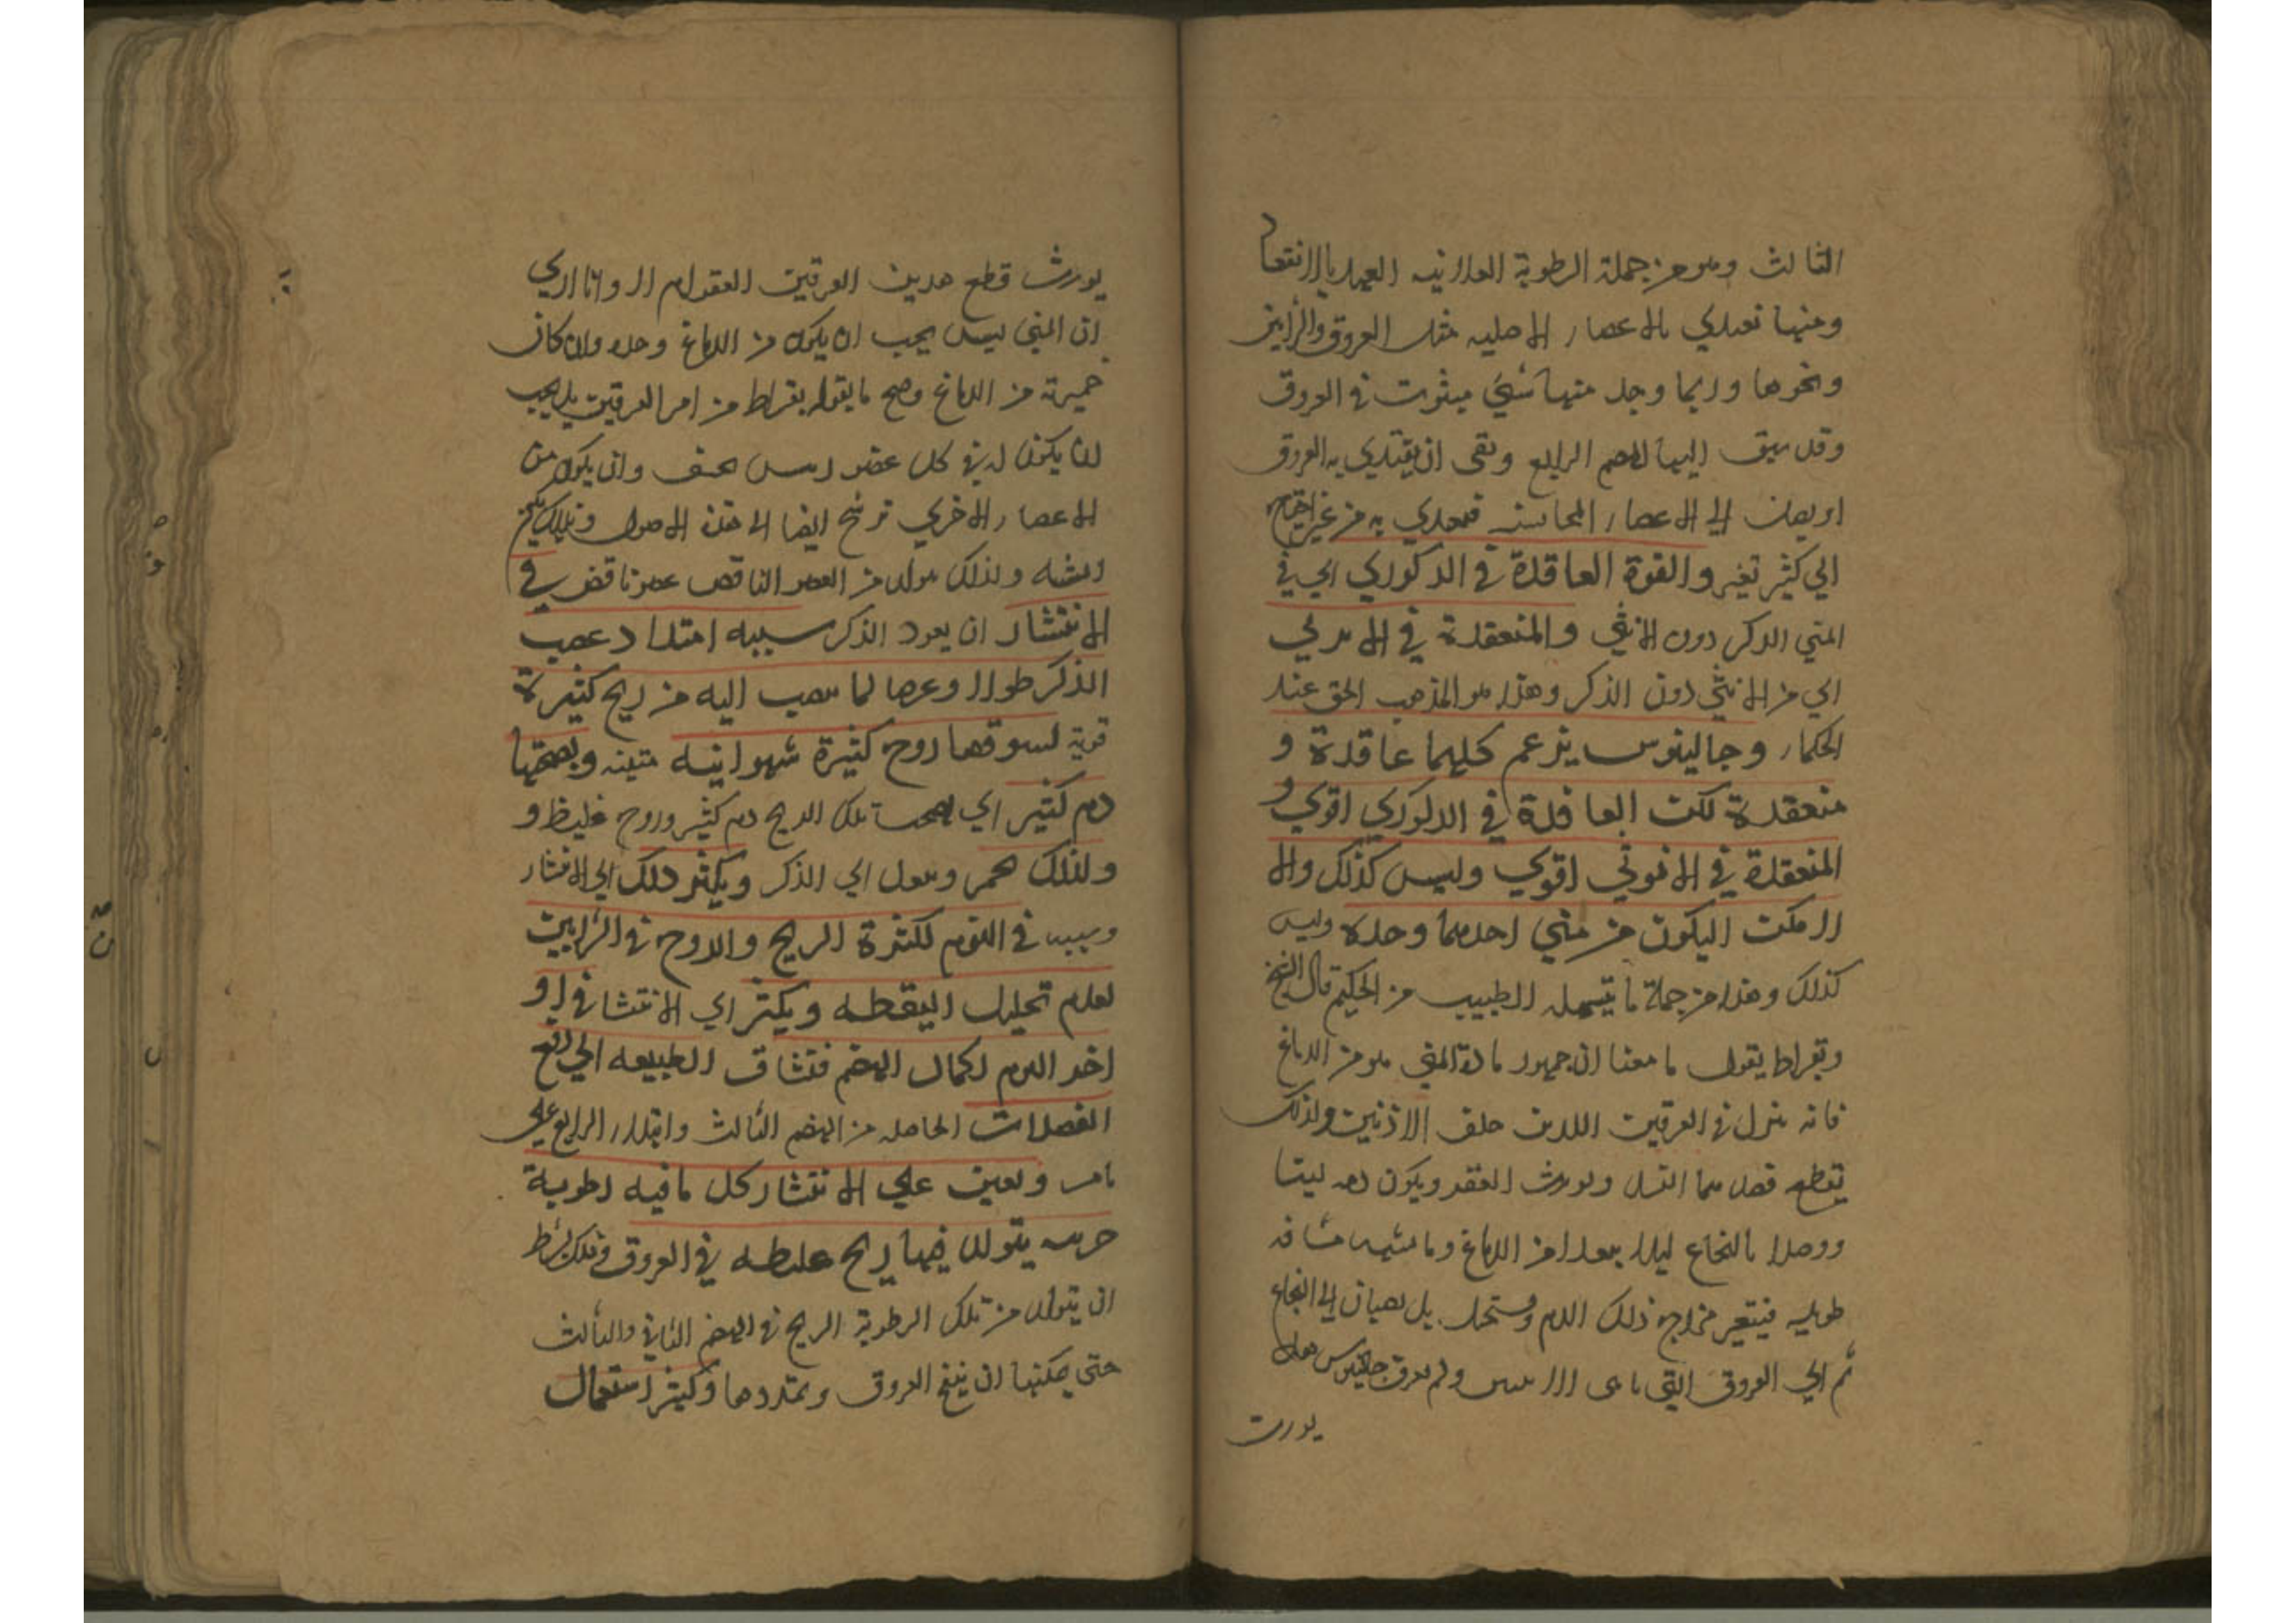 الثالث وهو من جملة الرطوبة العهد بالانعقاد
ومنها تغتدي الاعضاء الاصليه مثل العروق والشرايين
ونحوها وربما وجد منها شي مبثوث في العروق
وقد سبق اليها الهضم الرابع وبقى ان يغتدي به العروق
او يصل الى الاعضاء المجانسه فيغتدي به من غير احتياج
الي كثير تغير والقوة العاقدة في الذكوري اي في
المني الذكر دون الانثى والمنعقدة في
اي من الانثي دون الذكر وهذا هو المذهب الحق عند
الحكماء وجالينوس يزعم كليهما عاقدة و
منعقدة لكن العاقدة في الذكوري اقوي و
المنعقدة في الانوثي اقوي وليس كذلك والا
لامكن ان يكون من مني احدهما وحده وليس
كذلك وهذا من جملة ما الطبيب من الحكيم قال الشيخ
وبقراط يقول ما معناه ان جمهور مادة المني هو من الدماغ
فانه ينزل في العرقين اللذين خلف الاذنين ولذلك
يقطع فصدهما النسل ويورث العقر ويكون دمه لبنيا
ووصلا بالنخاع ليلا يبعدا من الدماغ وما يشبهه مسافة
طويله فيتغير مزاج ذلك الدم ويستحيل بل يصبان الى النخاع
ثم الي العروق التي تاتي الانثيين ولم يعرف جالينوس هل
يورث
يورث قطع هذين العرقين العقر ام لا وانا اري
ان المني ليس يجب ان يكون من الدماغ وحده وان كان
خميرته من الدماغ وصح ما يقوله بقراط من امر العرقين بل يجب
ان يكون له في كل عضو رييس عين وان يكون من
الاعضاء الاخري ترشح ايضا الى هذه الاصول وبذلك يكون
الشبه ولذلك يتولد من العضو الناقص عضو ناقص في
الانتشار ان يعود الذكر سببه امتداد عصب
الذكر طولا وعرضا لما ينصب اليه من ريح كثيرة
قوية يسوقها روح كثيرة شهوانيه متينه ويصحبها
دم كثير اي يصحب تلك الريح دم كثير وروح غليظ و
ولذلك يحمر ويثقل اي الذكر ويكثر ذلك اي الانتشار
وسببه في النوم لكثرة الريح والروح في الشرايين
لعدم تحليل اليقظه ويكثر اي الانتشار في او
اخر النوم لكمال الهضم فتشتاق الطبيعه الي دفع
الفضلات الحاصله من الهضم الثالث وابتداء الرابع علي
ما مر ويعين علي الانتشار كل ما فيه رطوبة
يتولد فيها ريح غليظه في العروق وذلك بشرط
ان يتولد من تلك الرطوبة الريح في الهضم الثاني والثالث
حتي يمكنها ان ينفخ العروق ويمددها وكثير استعمال